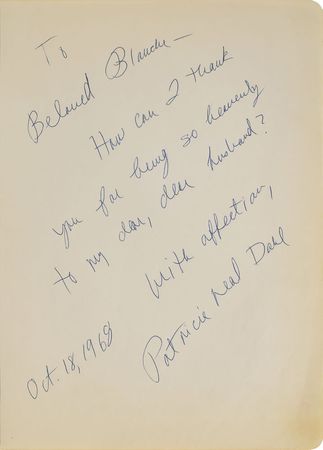 To
Beloved Blanche —
How can I thank
you for being so heavenly
to my dear, dear husband?
With affection,
Patricia Neal Dahl
Oct. 18, 1968